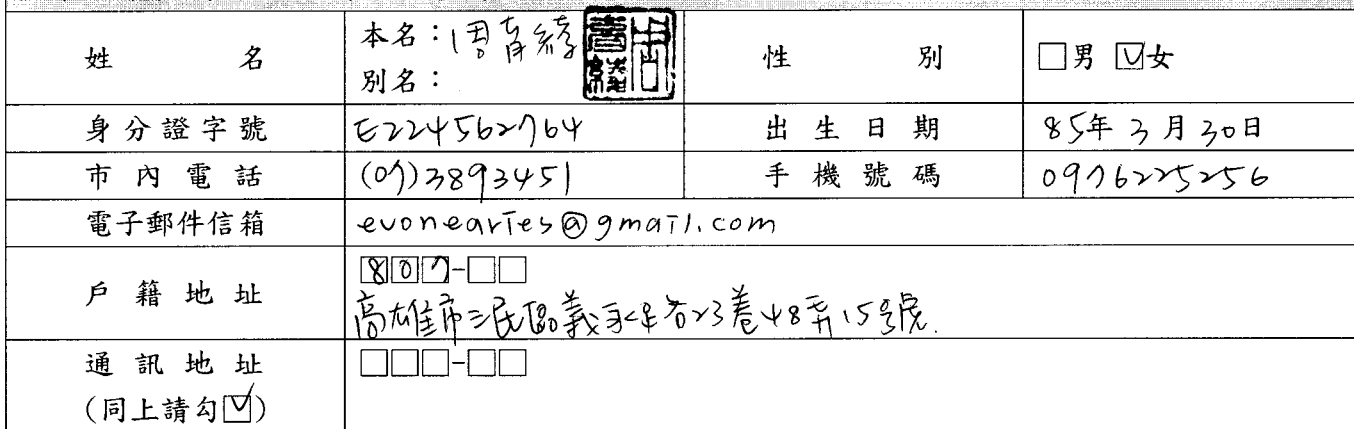 姓名 本名：周育綺 性別 □男 ☑女
別名：
身分證字號 E224562764 出生日期 85年3月30日
市內電話 (07)3893451 手機號碼 0976225256
電子郵件信箱 evonearies@gmail.com
戶籍地址 807-□□
高雄市三民區義永路23巷48弄15號.
通訊地址 □□□-□□
(同上請勾☑)